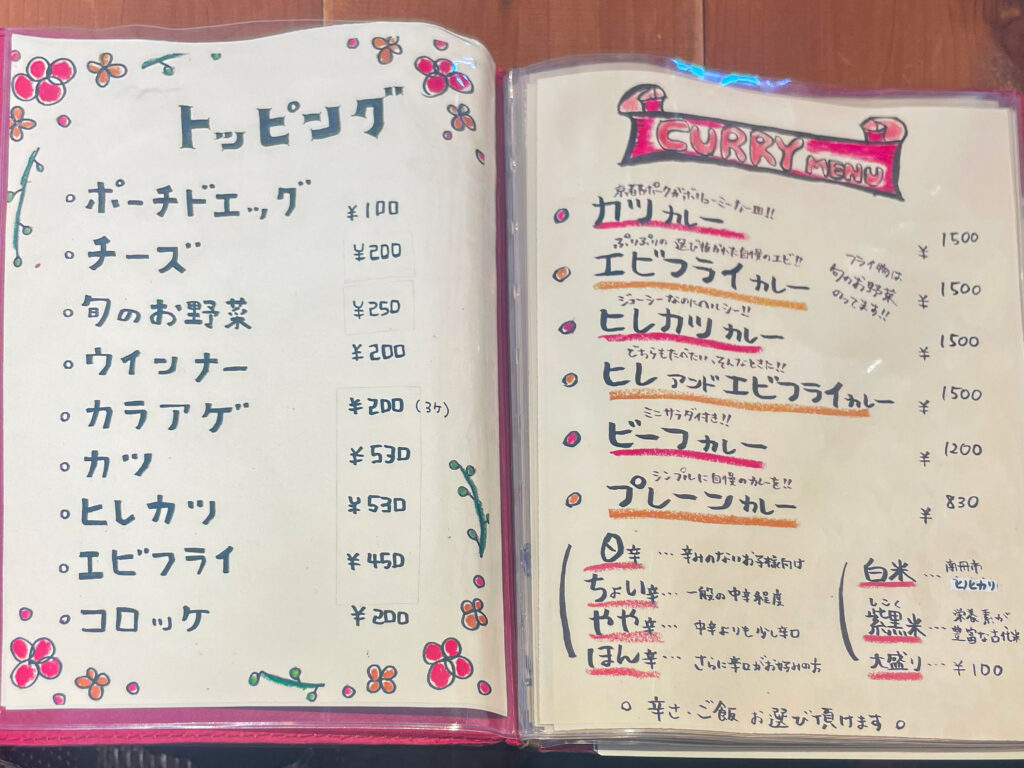 トッピング
ポーチドエッグ ¥100
チーズ ¥200
旬のお野菜 ¥250
ウインナー ¥200
カラアゲ ¥200 (3ケ)
カツ ¥530
ヒレカツ ¥530
エビフライ ¥450
コロッケ ¥200
CURRY MENU
京都ポークがボリューミーな一皿!!
カツカレー ¥1500
ぷりぷりの選び抜かれた自慢のエビ!!
エビフライカレー ¥1500
フライ物は
旬のお野菜
のってます!!
ジューシーなのにヘルシー!!
ヒレカツカレー ¥1500
どちらもたべたい、そんなときに!!
ヒレアンドエビフライカレー ¥1500
ミニサラダ付き!!
ビーフカレー ¥1200
シンプルに自慢のカレーを!!
プレーンカレー ¥830
0辛…辛みのないお子様向け
ちょい辛…一般の中辛程度
やや辛…中辛よりも少し辛口
ほん辛…さらに辛口がお好みの方
白米…南丹市
ヒノヒカリ
しこく
紫黒米…栄養素が
豊富な古代米
大盛り…¥100
辛さ・ご飯 お選び頂けます